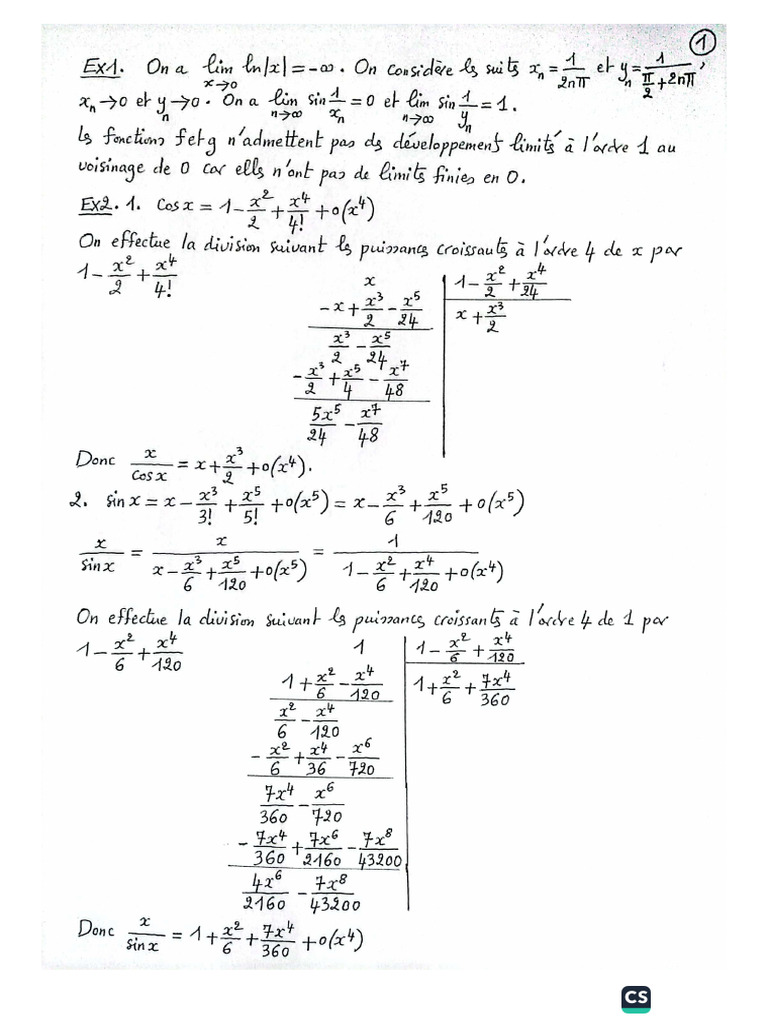 1
Ex1. On a lim ln|x| = -∞. On considère les suits xₙ = 1/(2nπ) et yₙ = 1/(π/2 + 2nπ),
x→0
xₙ → 0 et yₙ → 0. On a lim sin 1/xₙ = 0 et lim sin 1/yₙ = 1.
n→∞ n→∞
Ls fonctions f et g n'admettent pas ds développement limités à l'ordre 1 au
voisinage de 0 car ells n'ont pas de limits finies en 0.
Ex2. 1. Cos x = 1 - x²/2 + x⁴/4! + o(x⁴)
On effectue la division suivant ls puissancs croissants à l'ordre 4 de x par
1 - x²/2 + x⁴/4!
x | 1 - x²/2 + x⁴/24
- x + x³/2 - x⁵/24 | x + x³/2
x³/2 - x⁵/24
- x³/2 + x⁵/4 - x⁷/48
5x⁵/24 - x⁷/48
Donc x/cos x = x + x³/2 + o(x⁴).
2. sin x = x - x³/3! + x⁵/5! + o(x⁵) = x - x³/6 + x⁵/120 + o(x⁵)
x/sin x = x/(x - x³/6 + x⁵/120 + o(x⁵)) = 1/(1 - x²/6 + x⁴/120 + o(x⁴))
On effectue la division suivant ls puissancs croissants à l'ordre 4 de 1 par
1 - x²/6 + x⁴/120
1 | 1 - x²/6 + x⁴/120
1 + x²/6 - x⁴/120 | 1 + x²/6 + 7x⁴/360
x²/6 - x⁴/120
- x²/6 + x⁴/36 - x⁶/720
7x⁴/360 - x⁶/720
- 7x⁴/360 + 7x⁶/2160 - 7x⁸/43200
4x⁶/2160 - 7x⁸/43200
Donc x/sin x = 1 + x²/6 + 7x⁴/360 + o(x⁴)
CS